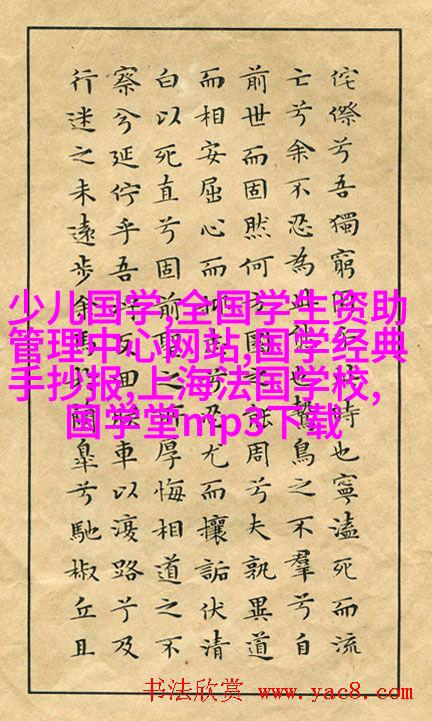 侘傺兮吾獨窮困時也寧溘死而流
亡兮余不忍為此態也鷙鳥之不羣兮自
前世而固然何方圜之能周兮夫孰異道
而相安屈心而抑忍尤而攘詬伏清
白以死直兮固前之所厚悔相道之不
察兮延佇乎吾將反回朕車以復路兮及
行迷之未遠步余馬於蘭皐兮馳椒丘且
少儿国学,全国学生资助
管理中心网站,国学经典
手抄报,上海法国学校,
国学堂mp3下载
书法欣赏 www.yac8.com